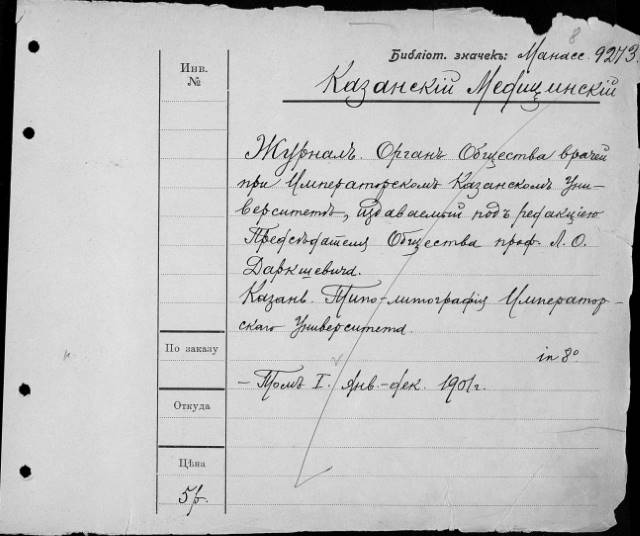 8
Инв. №
Библіот. значекъ: Манасс. 9273.
Казанскій Медицинскій
Журналъ. Органъ Общества врачей
при Императорскомъ Казанскомъ Уни-
верситетѣ, издаваемый подъ редакціею
Предсѣдателя Общества проф. Л. О.
Даркшевича.
Казань. Типо-литографія Император-
скаго Университета.
in 8°
По заказу
– Томъ I. янв.-дек. 1901 г.
Откуда
Цѣна
5 р.